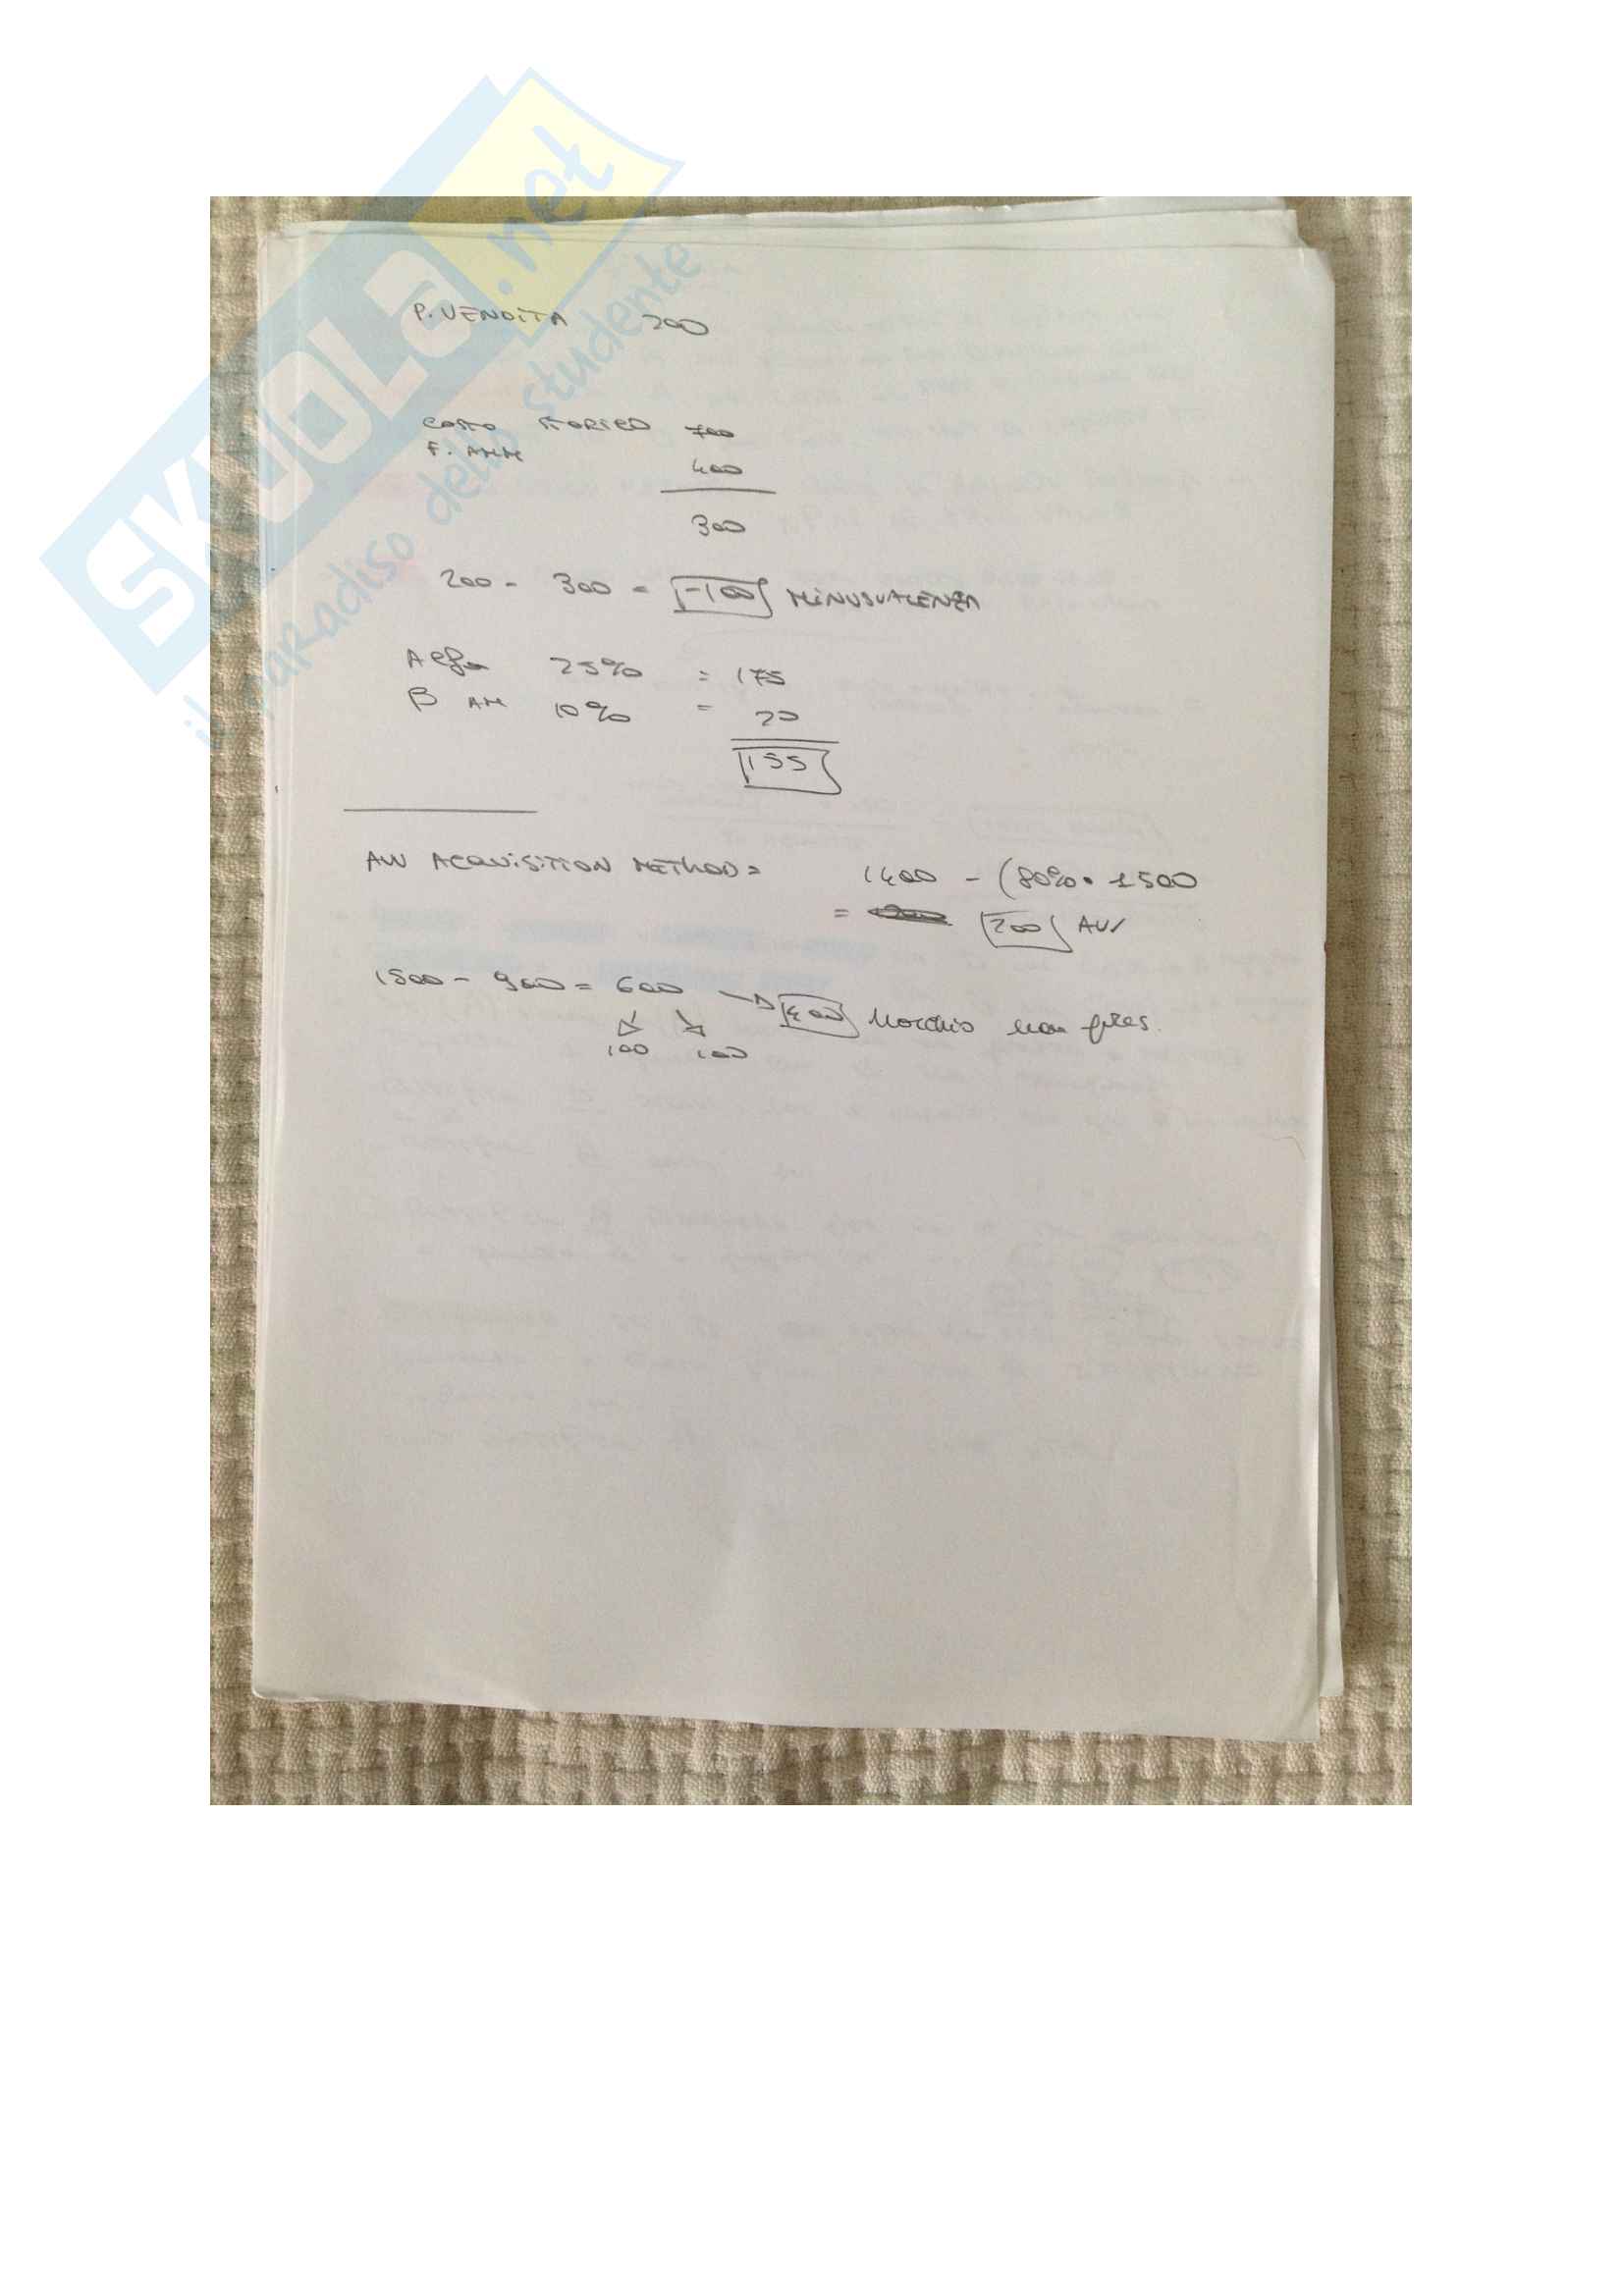 SKUOLA.net
il paradiso dello studente
P. VENDITA 200
COSTO STORICO 700
F. AMM 400
300
200 - 300 = -100 MINUSVALENZA
Alfa 25% = 175
β AM 10% = 20
155
AVV ACQUISITION METHOD = 1400 - (80% • 1500
= 200 AVV
1500 - 900 = 600 → 400 Marchio non
100 100